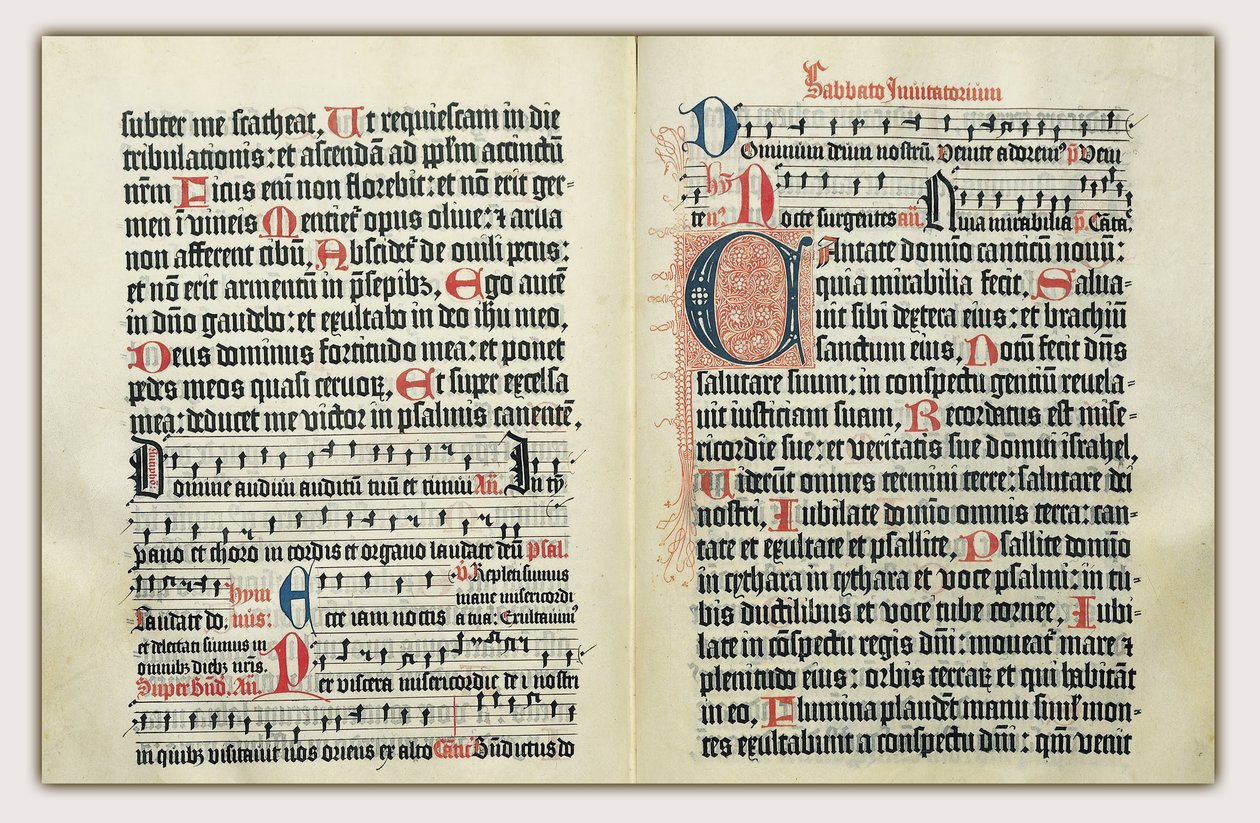 subter me scatheat, Ut requiescam in die
tribulationis: et ascendā ad pplm accinctū
nr̄m Ficus enī non florebit: et nō erit ger=
men ī vineis Mentiet̉ opus oliue: ⁊ arua
non afferent cibū, Abscidet̉ de ouili pecus:
et nō erit armentū in p̄sepibꝫ, Ego autē
in dn̄o gaudebo: et exultabo in deo ihū meo,
Deus dominus fortitudo mea: et ponet
pedes meos quasi ceruoꝝ, Et super excelsa
mea: deducet me victor in psalmis canentē,
Domine audiui auditū tuū et timui Añ. In tȳ
pano et choro in cordis et organo laudate deū Psal.
Laudate do, hymnus: Ecce iam noctis
V̄. Repleti sumus
mane misericordi
a tua: Exultauimꝰ
et delectati sumus in
omnibꝫ diebꝫ nr̄is.
Super Bn̄d. Añ. Per viscera misericordie de i nostri
in quibꝫ visitauit nos oriens ex alto Cātic̄ Bn̄dictus do
Sabbato Inuitatorium
Dominum deum nostrū. Venite adoremꝰ p̄ Veni
te nꝰ. hȳ Nocte surgentes añ. Quia mirabilia p̄. Cāta.
CAntate domīo canticū nouū:
quia mirabilia fecit, Salua-
uit sibi dextera eius: et brachiū
sanctum eius, Notū fecit dn̄s
salutare suum: in conspectu gentiū reuela=
uit iusticiam suam, Recordatus est mise=
ricordie sue: et veritatis sue domui israhel,
Uiderūt omnes termini terre: salutare dei
nostri, Iubilate domīo omnis terra: can=
tate et exultate et psallite, Psallite domīo
in cythara in cythara et voce psalmi: in tu=
bis ductilibus et voce tube cornee, Iubi=
late in cōspectu regis dn̄i: moueat̉ mare ⁊
plenitudo eius: orbis terraꝝ et qui habitāt
in eo, Flumina plaudēt manu simł mon=
tes exultabunt a conspectu dn̄i: qm̄ venit